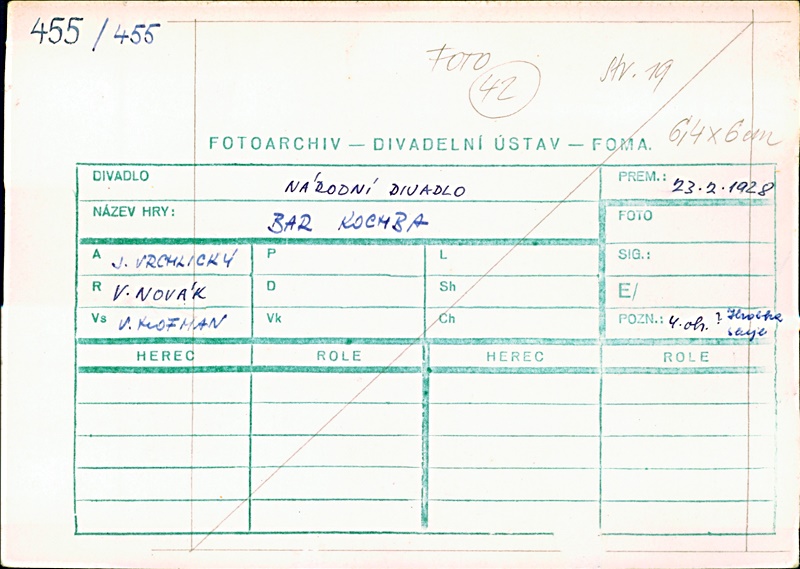 455 / 455
FOTO
42
str. 19
6,4 x 6 cm
FOTOARCHIV — DIVADELNÍ ÚSTAV — FOMA.
DIVADLO NÁRODNÍ DIVADLO PREM.: 23.2.1928
NÁZEV HRY: BAR KOCHBA FOTO
A J. VRCHLICKÝ P L SIG.:
R V. NOVÁK D Sh E/
Vs V. HOFMAN Vk Ch POZN.: 4. ob. ?
HEREC ROLE HEREC ROLE